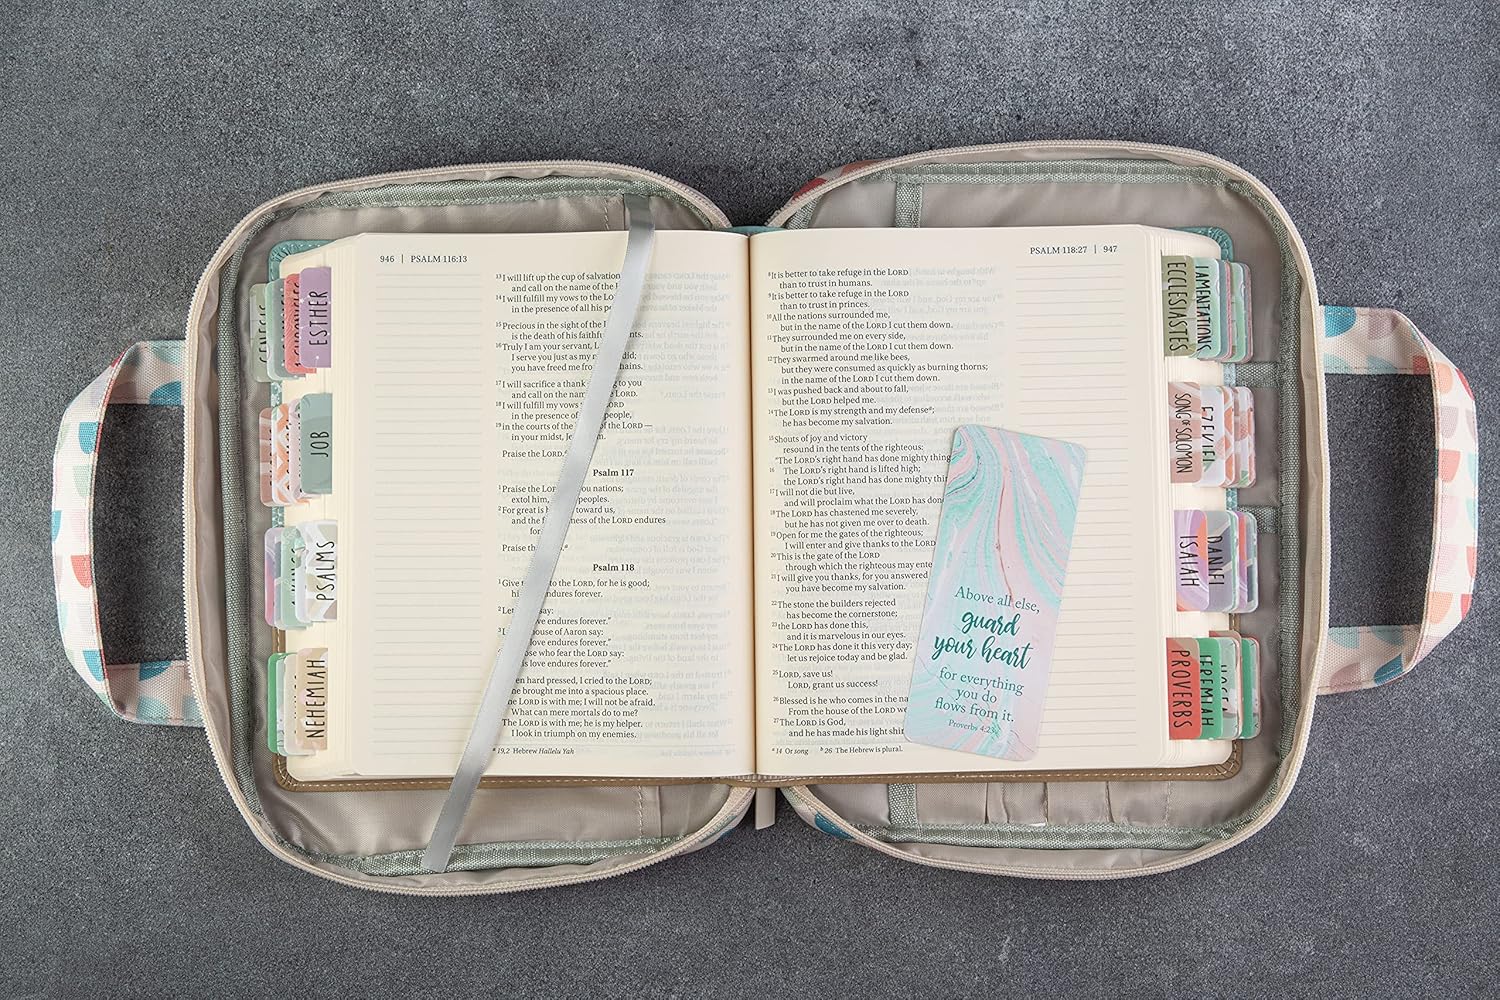 946 | PSALM 116:13
13 I will lift up the cup of salvation
and call on the name of the
14 I will fulfill my vows to the
in the presence of all his
15 Precious in the sight of the
is the death of his faithful
16 Truly I am your servant,
I serve you just as my did;
you have freed me from
17 I will sacrifice a thank to you
and call on the name LORD.
18 I will fulfill my vows LORD
in the presence of people,
19 in the courts of the of the LORD —
in your midst,
Praise the LORD.
Psalm 117
1 Praise the nations;
extol him, peoples.
2 For great is toward us,
and the of the LORD endures
Praise the
Psalm 118
1 Give to the LORD, for he is good;
endures forever.
2 Let say:
love endures forever."
3 house of Aaron say:
love endures forever."
who fear the LORD say:
love endures forever."
hard pressed, I cried to the LORD;
he brought me into a spacious place.
The LORD is with me; I will not be afraid.
What can mere mortals do to me?
The LORD is with me; he is my helper.
I look in triumph on my enemies.
a 19,2 Hebrew Hallelu Yah
PSALM 118:27 | 947
8 It is better to take refuge in the LORD
than to trust in humans.
9 It is better to take refuge in the LORD
than to trust in princes.
10 All the nations surrounded me,
but in the name of the LORD I cut them down.
11 They surrounded me on every side,
but in the name of the LORD I cut them down.
12 They swarmed around me like bees,
but they were consumed as quickly as burning thorns;
in the name of the LORD I cut them down.
13 I was pushed back and about to fall,
but the LORD helped me.
14 The LORD is my strength and my defense a;
he has become my salvation.
15 Shouts of joy and victory
resound in the tents of the righteous:
"The LORD's right hand has done mighty
16 The LORD's right hand is lifted high;
the LORD's right hand has done mighty
17 I will not die but live,
and will proclaim what the LORD has
18 The LORD has chastened me severely,
but he has not given me over to death.
19 Open for me the gates of the righteous;
I will enter and give thanks to the LORD
20 This is the gate of the LORD
through which the righteous may
21 I will give you thanks, for you answered
you have become my salvation.
22 The stone the builders rejected
has become the cornerstone;
23 the LORD has done this,
and it is marvelous in our eyes.
24 The LORD has done it this very day;
let us rejoice today and be glad.
25 LORD, save us!
LORD, grant us success!
26 Blessed is he who comes in the
From the house of the LORD
27 The LORD is God,
and he has made his light
a 14 Or song b 26 The Hebrew is plural.
Above all else,
guard
your heart
for everything
you do
flows from it.
Proverbs 4:23
GENESIS
ESTHER
JOB
PSALMS
NEHEMIAH
ECCLESIASTES
LAMENTATIONS
SONG OF SOLOMON
EZEKIEL
ISAIAH
DANIEL
PROVERBS
JEREMIAH